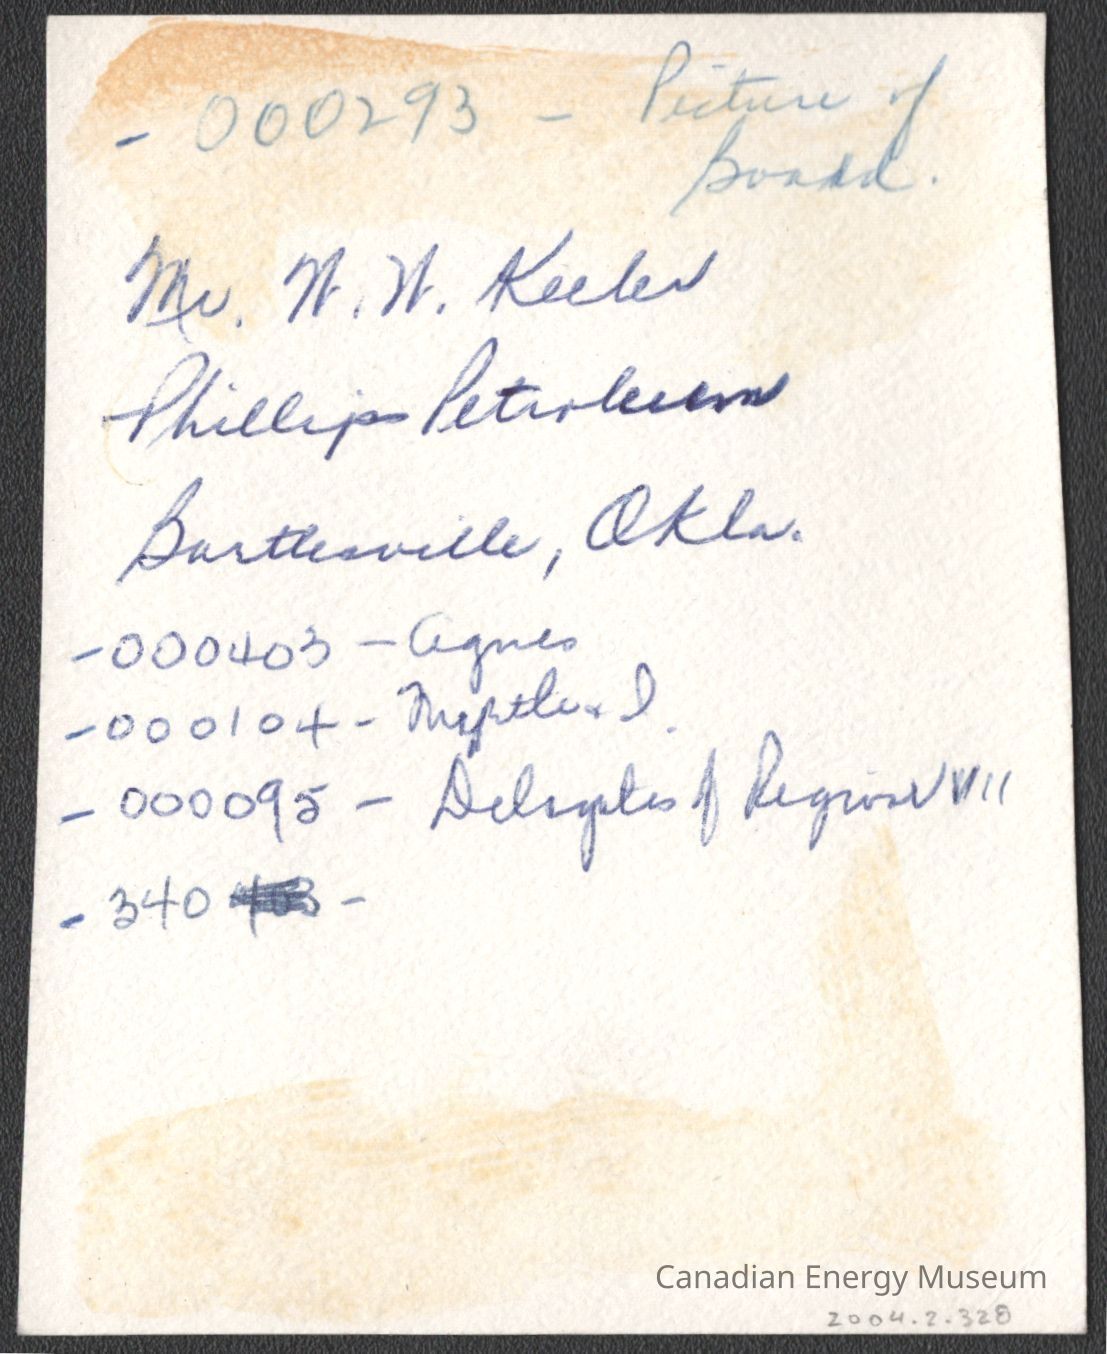 - 000293 - Picture of
Board.
Mr. W. W. Keeler
Phillips Petroleum
Bartlesville, Okla.
- 000403 - Agnes
- 000104 - Myrtle & I.
- 000095 - Delegates of Region VIII
- 340 -
Canadian Energy Museum
2004.2.328